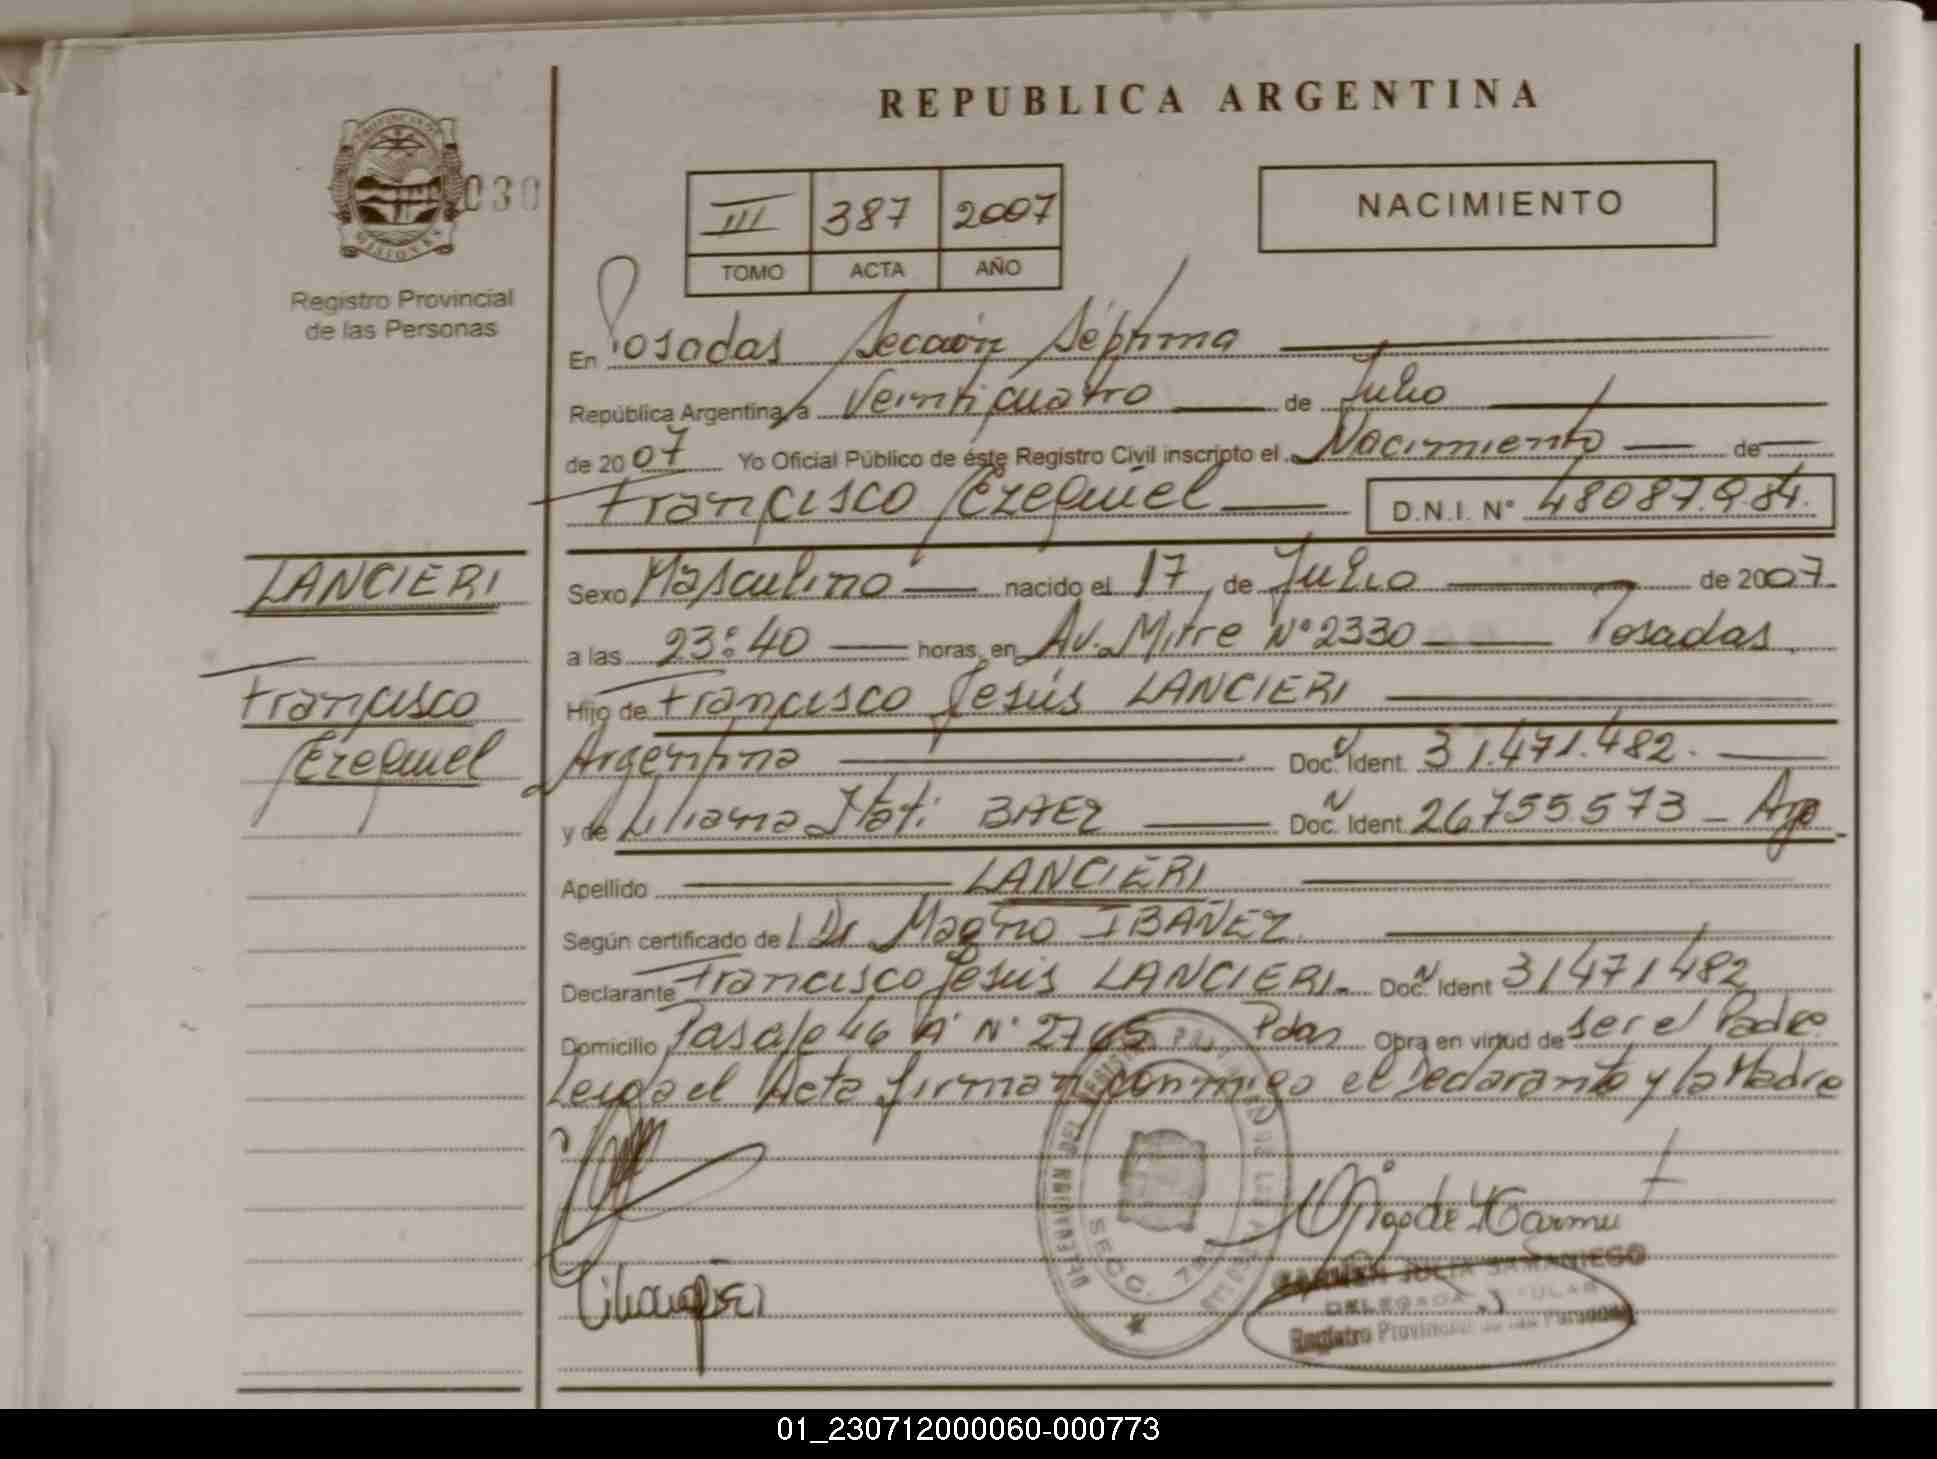 REPUBLICA ARGENTINA
PROVINCIA DE
MISIONES
030
Registro Provincial
de las Personas
III 387 2007
TOMO ACTA AÑO
NACIMIENTO
En Posadas Sección Séptima
República Argentina, a Veinticuatro de Julio
de 2007 Yo Oficial Público de éste Registro Civil inscripto el Nacimiento de
Francisco Ezequiel D.N.I. N° 48087.984.
LANCIERI
Francisco
Ezequiel
Sexo Masculino nacido el 17 de Julio de 2007
a las 23:40 horas, en Av. Mitre N° 2330 Posadas.
Hijo de Francisco Jesús LANCIERI
Argentina Doc. Ident. 31.471.482.
y de Liliana Itatí BAEZ Doc. Ident. 26755573 - Arg
Apellido LANCIERI
Según certificado de Dr Magno IBAÑEZ
Declarante Francisco Jesús LANCIERI. Doc. Ident 31471482
Domicilio Pasaje 46 A N° 2765 Pdas Obra en virtud de ser el Padre
Leida el Acta firman conmigo el Declarante y la Madre
SECC. 7
CARMEN JULIA SAMANIEGO
DELEGADA TITULAR
Registro Provincial de las Personas
01_230712000060-000773